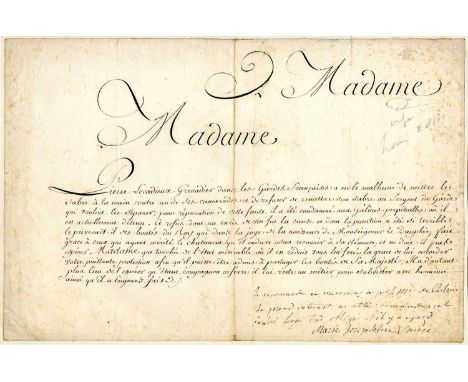 A Madame
Madame
Pierre Levadieux Grenadier dans les Gardes Françaises a eu le malheur de mettre le
Sabre à la main contre un de ses camarades et de refuser de remettre son Sabre au Sergent de Garde
qui vouloit les séparer; pour réparation de cette faute il a été condamné aux Galères perpétuelles où il
est actuellement détenu. Ce refus dont un excès de vin fut la cause et dont la punition a été si terrible
le priveroit-il des bontés du Roi qui dans la joye de la naissance de Monseigneur le Dauphin, fait
grace à ceux qui ayant mérité le chatiment qu'il endure
espérer. Madame qui touchée de l'état misérable où il est réduit vous lui ferés la grace de lui accorder
votre puissante protection afin qu'il puisse être admis à partager les bontés de Sa Majesté; Il a d'autant
plus lieu de l'espérer qu'étant compagnon orfévre il lui reste un métier pour subsister avec honneur
ainsi qu'il a toujours fait.
Je recommande ce mémoire à M. le M. de
de prendre interest a cette demande
Marie Josephine Louise
Louis XVIII